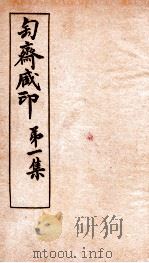 匋齋臧印 弟一集
研狗
mtoou.info